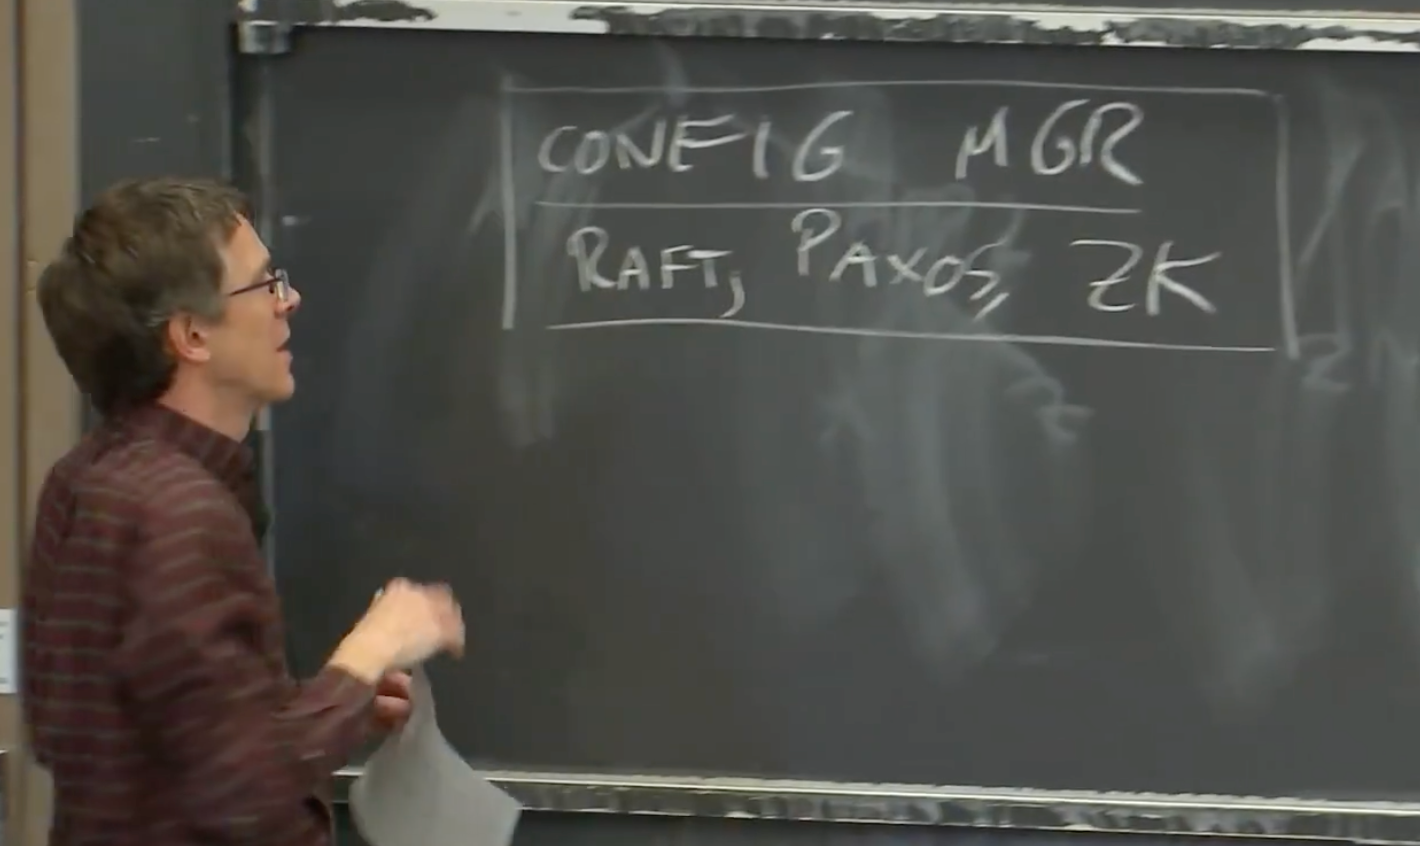 CONFIG MGR
RAFT, PAXOS, ZK